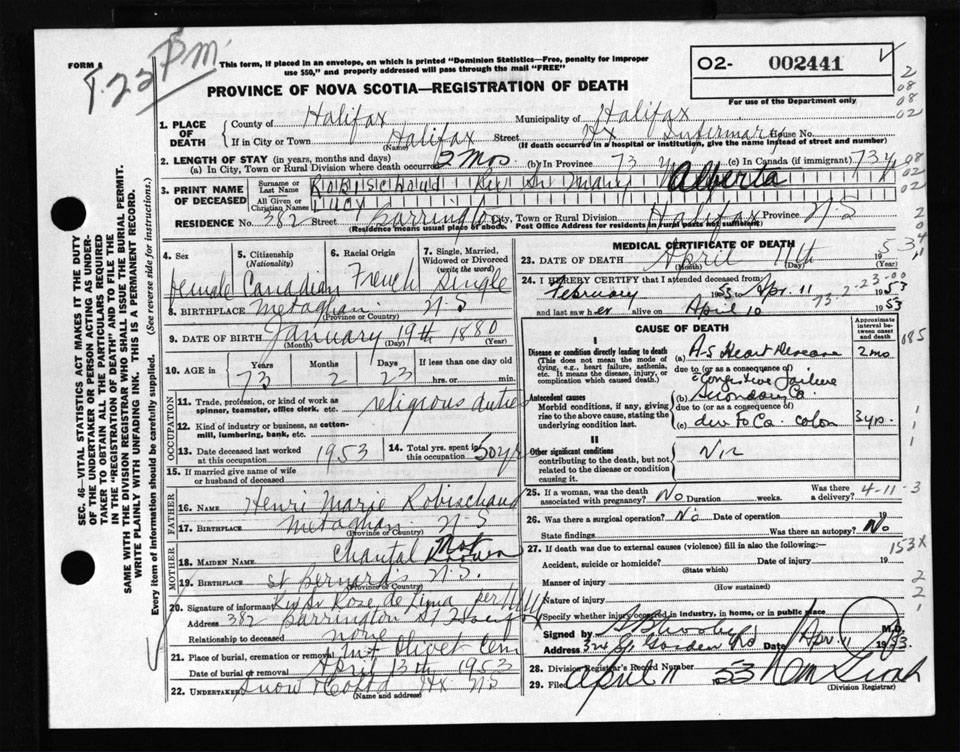 FORM 6
1.23 PM
This form, if placed in an envelope, on which is printed "Dominion Statistics—Free, penalty for improper
use $50," and properly addressed will pass through the mail "FREE"
PROVINCE OF NOVA SCOTIA—REGISTRATION OF DEATH
O2- 002441
For use of the Department only
1. PLACE OF DEATH County of Halifax Municipality of Halifax
If in City or Town Halifax Street Hx Infirmary House No.
(Name) (If death occurred in a hospital or institution, give the name instead of street and number)
2. LENGTH OF STAY (in years, months and days)
(a) In City, Town or Rural Division where death occurred 2 mos. (b) In Province 73 y (c) In Canada (if immigrant) 73 y
3. PRINT NAME OF DECEASED Surname or Last Name Robischaud Rev Sr Mary Alberta
All Given or Christian Names Lucy
RESIDENCE No. 382 Street Barrington City, Town or Rural Division Halifax Province N-S
(Residence means usual place of abode. Post Office Address for residents in rural parts not sufficient)
4. Sex 5. Citizenship (Nationality) 6. Racial Origin 7. Single, Married, Widowed or Divorced (write the word)
female Canadian French Single
8. BIRTHPLACE Metaghan N-S
(Province or Country)
9. DATE OF BIRTH January 19th 1880
(Month) (Day) (Year)
10. AGE in Years Months Days If less than one day
73 2 23 hrs. or min.
OCCUPATION
11. Trade, profession, or kind of work as spinner, teamster, office clerk, etc. religious duties
12. Kind of industry or business, as cotton-mill, lumbering, bank, etc.
13. Date deceased last worked at this occupation 1953 14. Total yrs. spent in this occupation 50 yrs
15. If married give name of wife or husband of deceased
FATHER
16. NAME Henri Marie Robischaud
17. BIRTHPLACE Metaghan N-S
(Province or Country)
MOTHER
18. MAIDEN NAME Chantal Not Known
19. BIRTHPLACE St Bernards N.S.
(Province or Country)
20. Signature of informant Rev Sr Rose de Lima per
Address 382 Barrington St
Relationship to deceased none
21. Place of burial, cremation or removal Mt Olivet Cem
Date of burial or removal April 13th 1953
22. Undertaker Snow & Co Ltd Hx NS
(Name and address)
MEDICAL CERTIFICATE OF DEATH
23. DATE OF DEATH April 11th 1953
(Month) (Day) (Year)
24. I HEREBY CERTIFY that I attended deceased from:
February 1953 to Apr. 11 1953
73-2-23-00
and last saw her alive on April 10 1953
CAUSE OF DEATH
Approximate interval between onset and death
I
Disease or condition directly leading to death
(This does not mean the mode of dying, e.g., heart failure, asthenia, etc. It means the disease, injury, or complication which caused death)
(a) A-S Heart Disease 2 mo
due to (or as a consequence of)
Congestive failure
Antecedent causes
Morbid conditions, if any, giving rise to the above cause, stating the underlying condition last.
(b) Secondary Ca.
due to (or as a consequence of)
(c) due to Ca. colon 3 yrs.
II
Other significant conditions
contributing to the death, but not related to the disease or condition causing it.
Nil
25. If a woman, was the death associated with pregnancy? No Duration weeks. Was there a delivery? 4-11-3
26. Was there a surgical operation? No Date of operation
State findings Was there an autopsy? No
27. If death was due to external causes (violence) fill in also the following:—
Accident, suicide or homicide? Date of injury 19
(State which)
Manner of injury
(How sustained)
Nature of injury
Specify whether injury occurred in industry, in home, or in public place
Signed by M.D.
Address Date Apr. 11 1953.
28. Division Registrar's Record Number
29. Filed April 11 53
(Division Registrar)
153X
SEC. 46—VITAL STATISTICS ACT MAKES IT THE DUTY
OF THE UNDERTAKER OR PERSON ACTING AS UNDER-
TAKER TO OBTAIN ALL THE PARTICULARS REQUIRED
IN THE "REGISTRATION OF DEATH" AND TO FILE THE
SAME WITH THE DIVISION REGISTRAR WHO SHALL ISSUE THE BURIAL PERMIT.
WRITE PLAINLY WITH UNFADING INK. THIS IS A PERMANENT RECORD.
Every item of information should be carefully supplied. (See reverse side for instructions.)